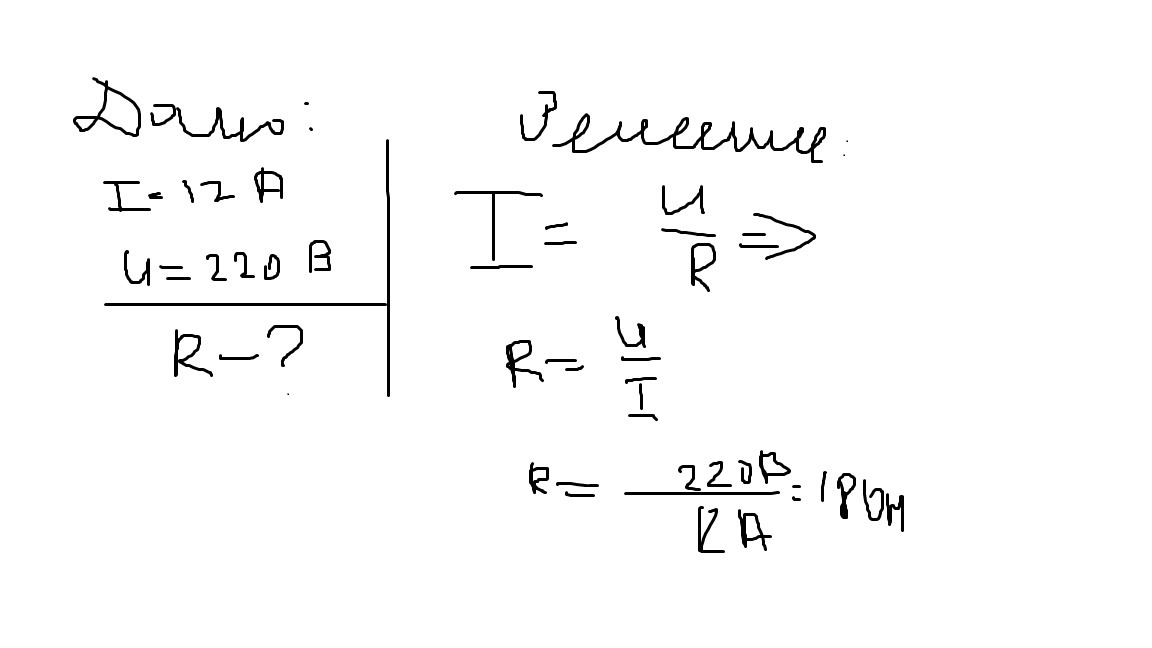 Дано:
I=12 А
U=220 В
R-?
Решение:
I= U/R =>
R= U/I
R= 220В/12А=18Ом